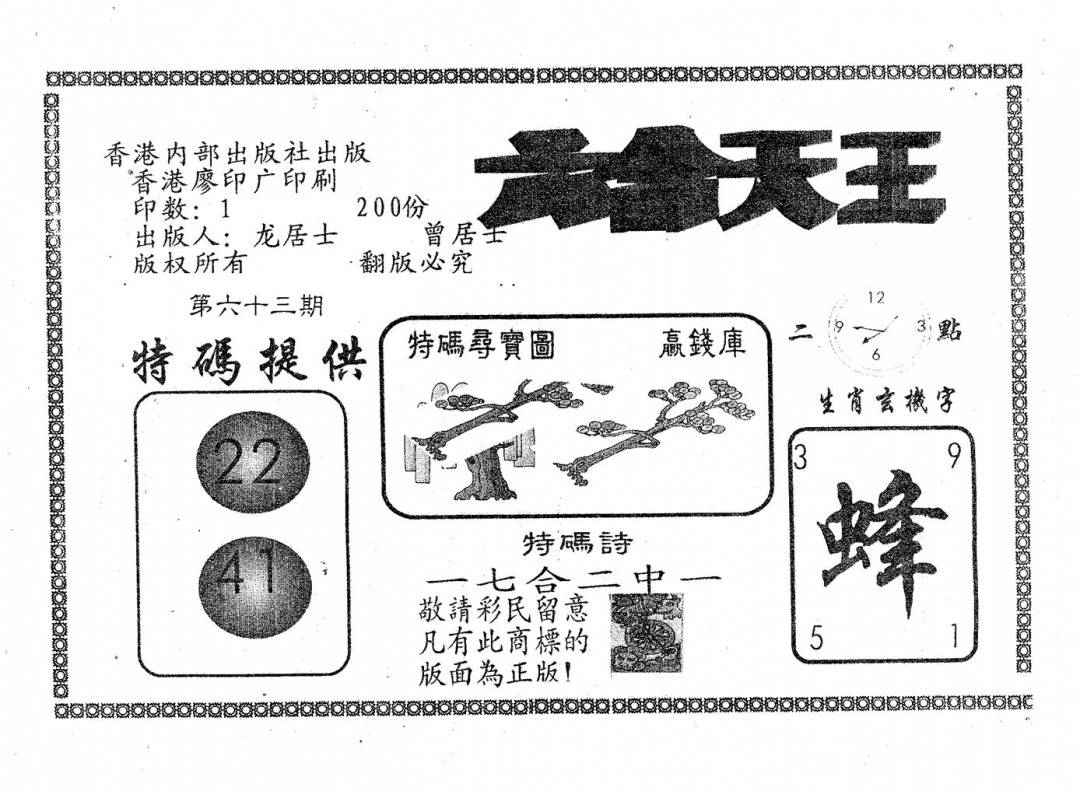 六合天王
香港内部出版社出版
香港廖印广印刷
印数：1 200份
出版人：龙居士 曾居士
版权所有 翻版必究
第六十三期
特碼提供
22
41
特碼尋寶圖 贏錢庫
二 點
12
9 3
6
生肖玄機字
3 9
蜂
5 1
特碼詩
一七合二中一
敬請彩民留意
凡有此商標的
版面為正版!